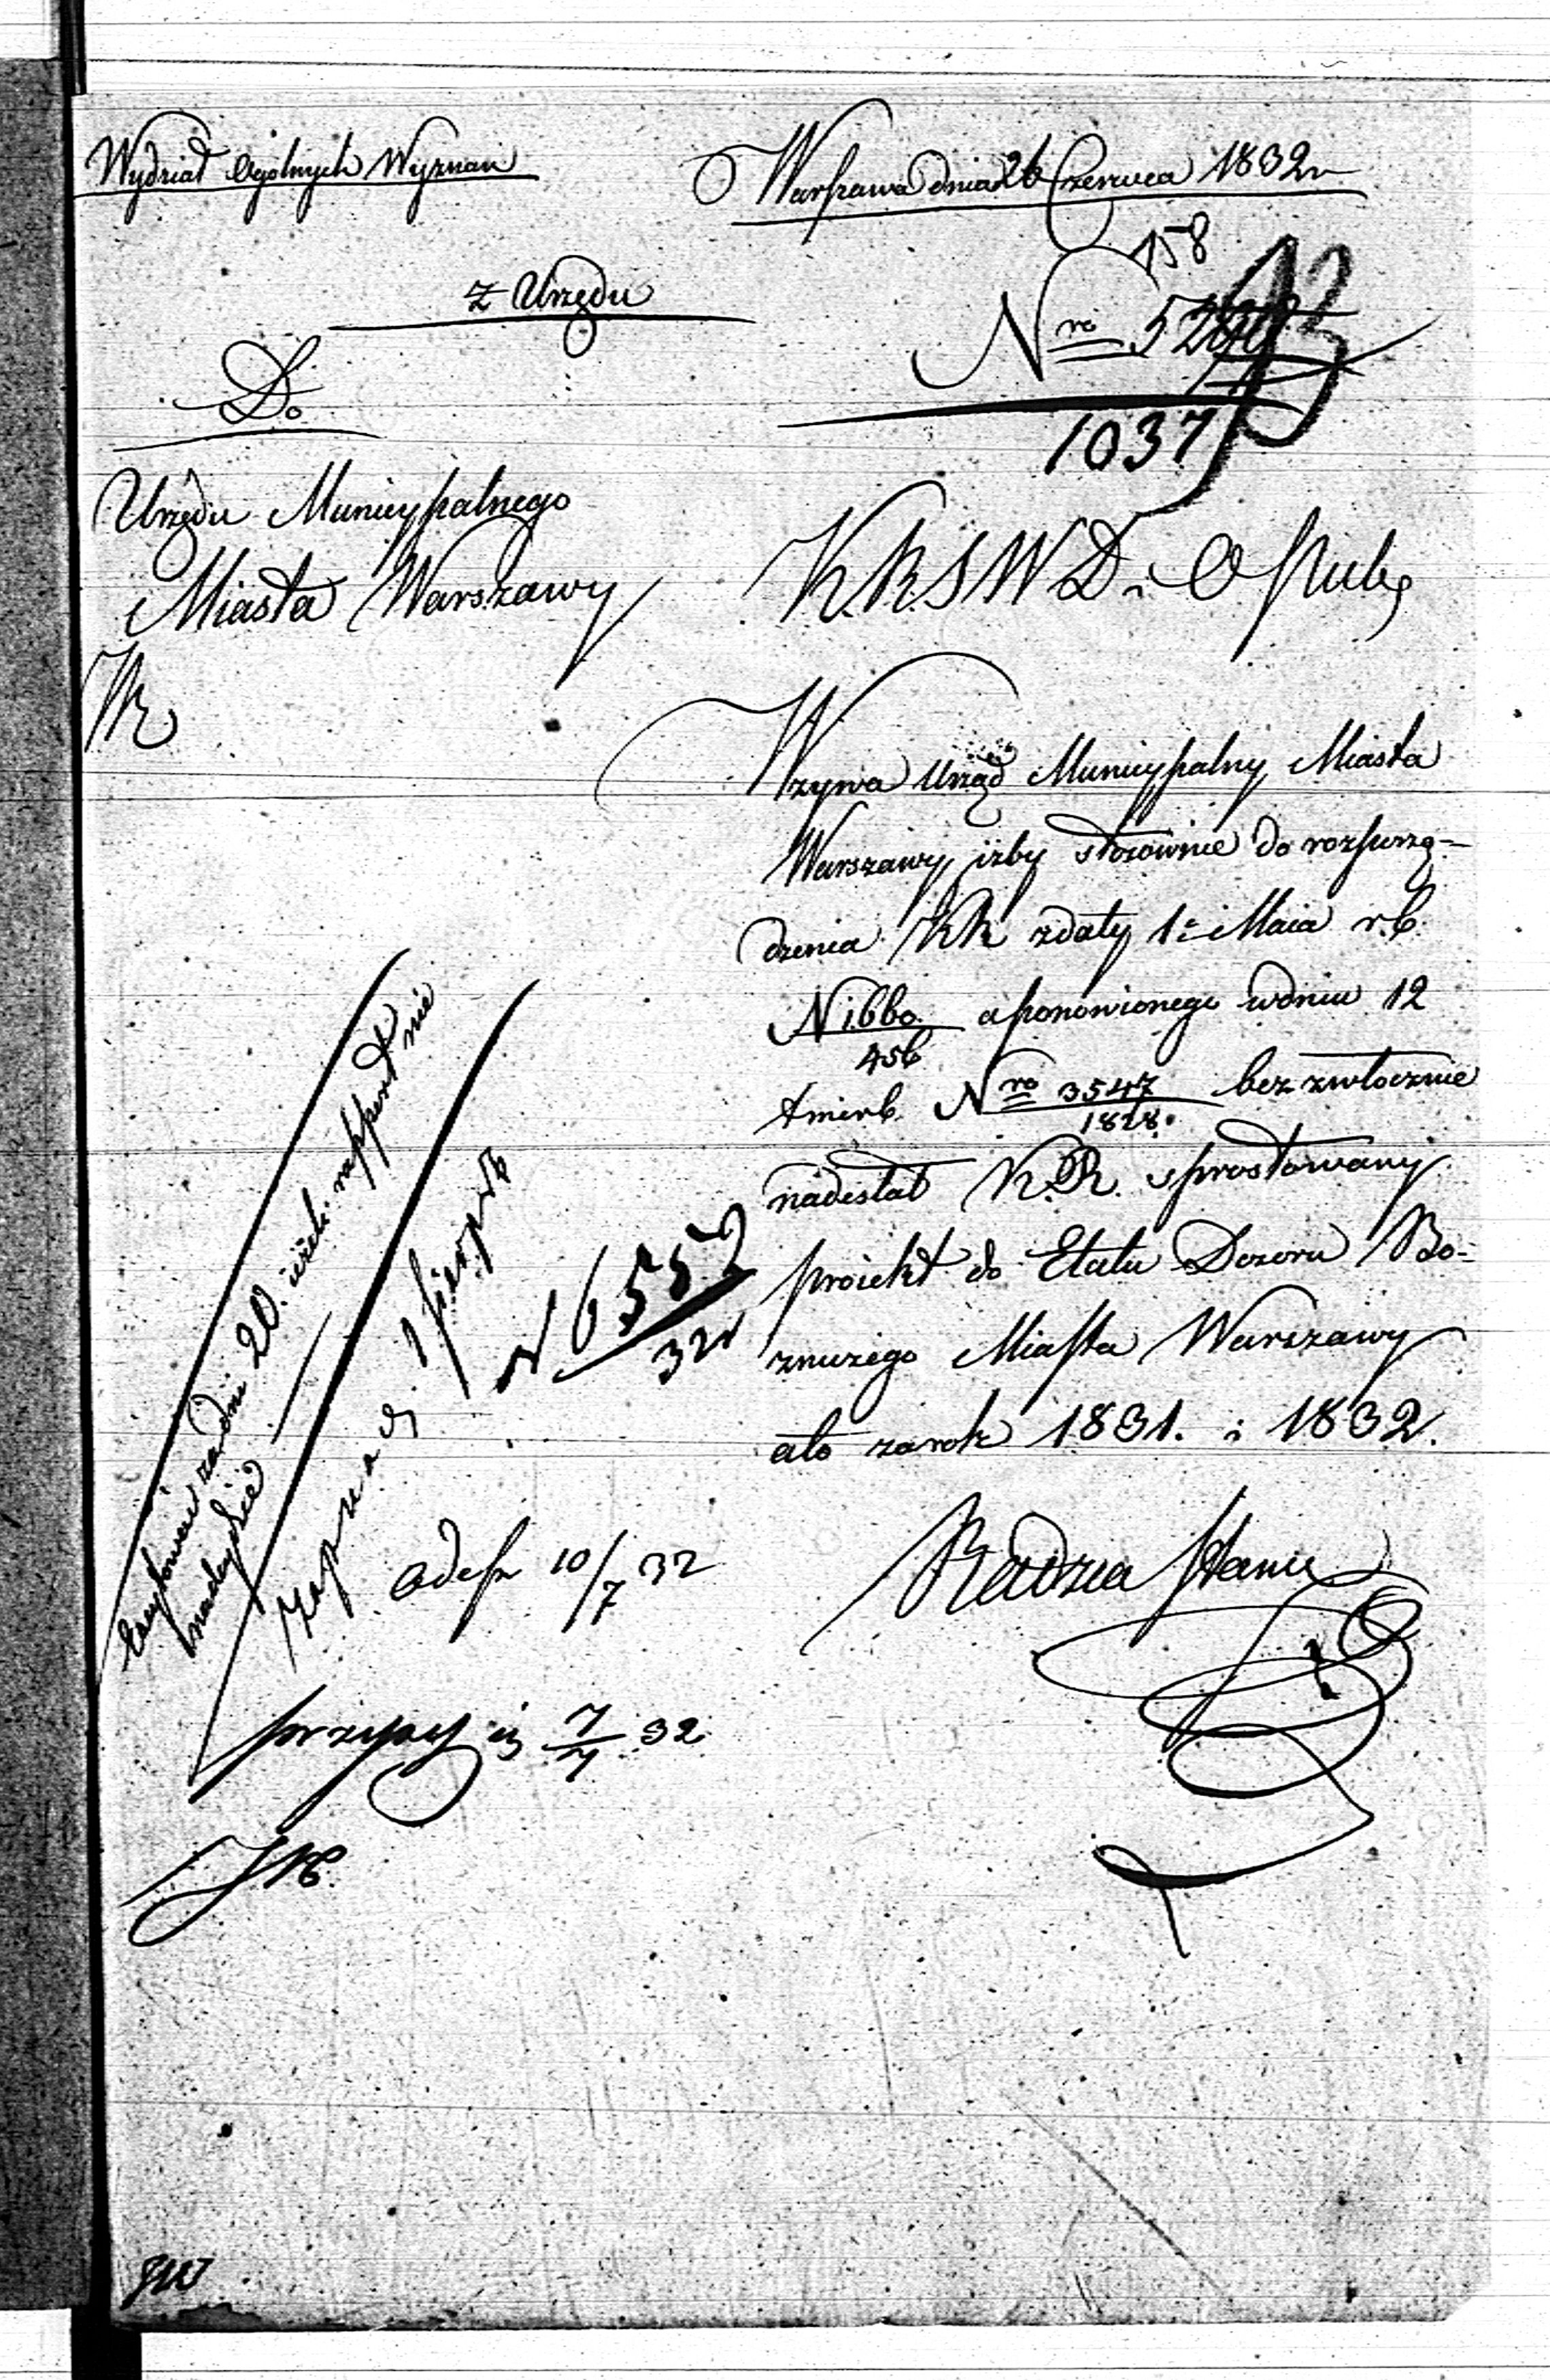 Wydział Ogólnych Wyznań
Warszawa dnia 26 Czerwca 1832 r
158
z Urzędu
Nro
1037
Do
Urzędu Municypalnego
Miasta Warszawy
K.R.S.W.D. i O. publ.
Wzywa Urząd Municypalny Miasta
Warszawy, iżby stosownie do rozporzą-
dzenia KR z daty 1. Maia r.b.
N 1660. a ponowionego w dniu 12
456
t. m. i r. b. Nro 3547 bezzwłocznie
1828.
nadesłał K.R. sprostowany
proiekt do Etatu Dozoru Bo-
znicznego Miasta Warszawy
ato za rok 1831. i 1832.
Radzca Stanu
20
rapport nie
N 6552
32 r
odesz 10/7 32
7/7 32